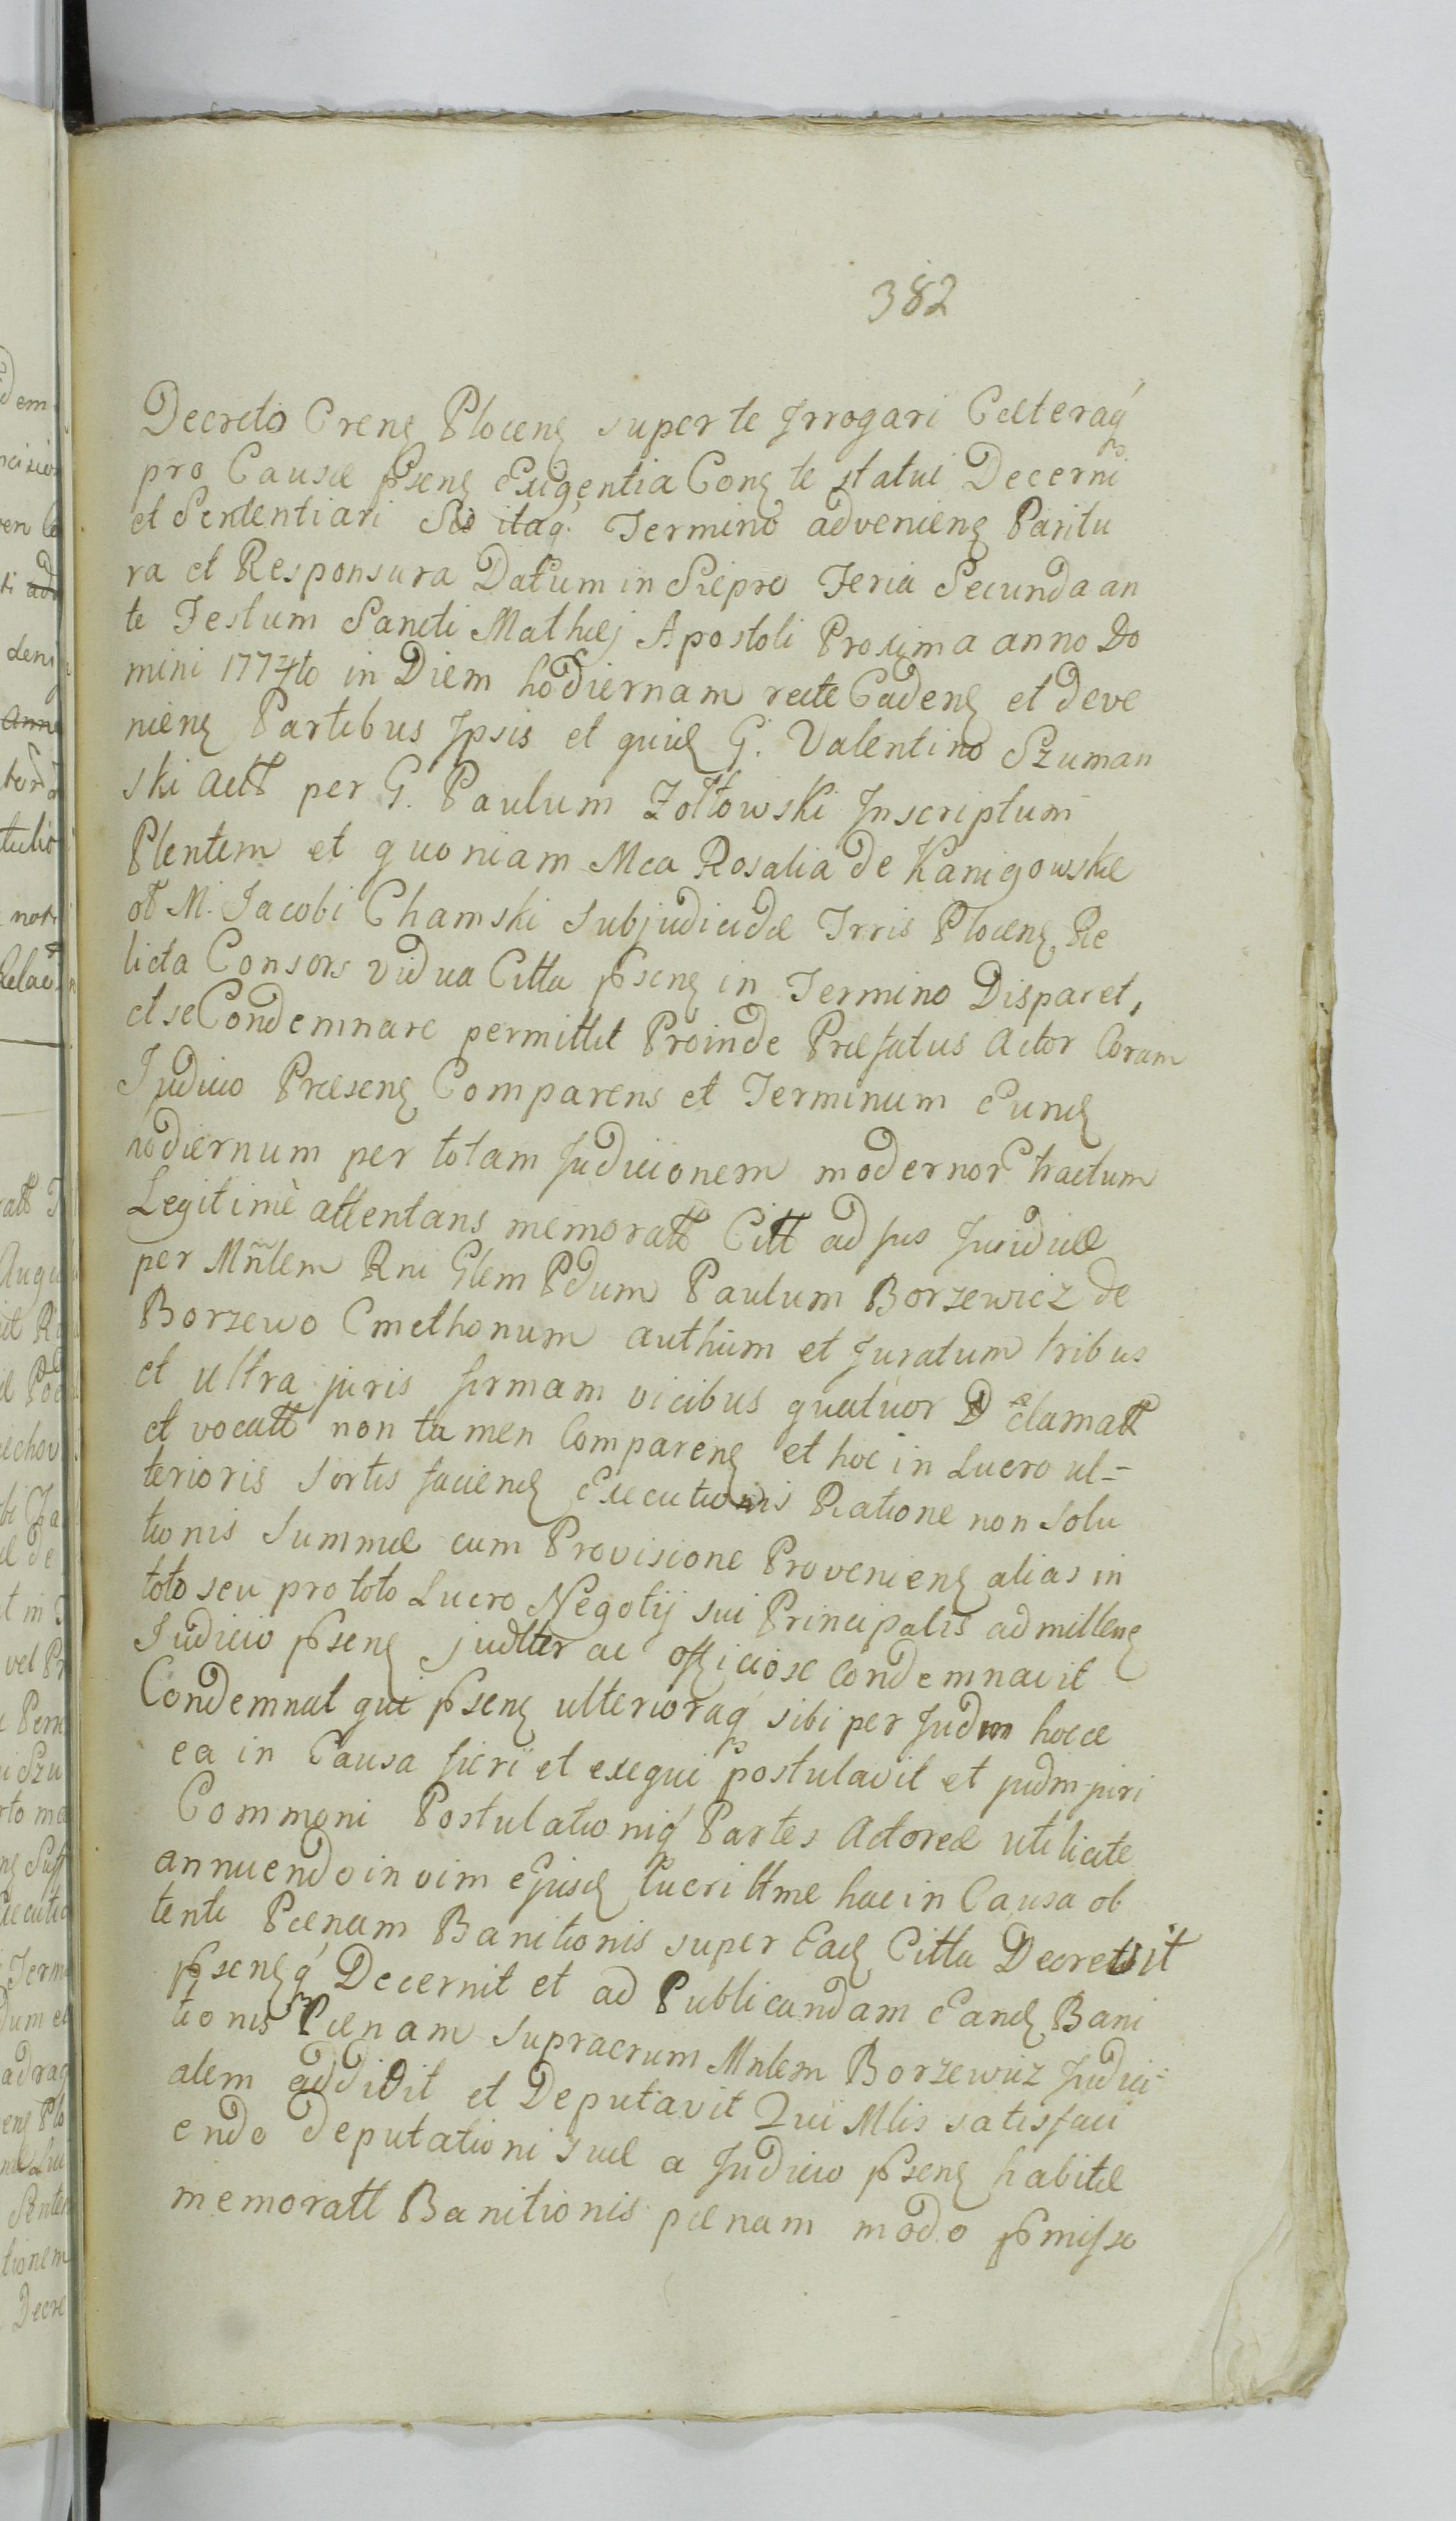 382
Decreto Crenȩ Plocenȩ super te Irrogari Cæteraq́
pro Causæ pͬsenȩ Exigentia Conȩ te statui Decerni
et Sententiari Sis itaq́. Termino advenienȩ Paritu
ra et Responsura Datum in Sierpc Feria Secunda an
te Festum Sancti Mathæj Apostoli Proxima anno Do
mini 1774to in Diem hodiernam recte Cadenȩ et deve
nienȩ Partibus Ipsis et quid G. Valentino Szuman
ski Actt per G. Paulum Zołtowski Inscriptum
Plentem et quoniam Mca Rosalia de Kanigowskie
ol M. Jacobi Chamski Subjudicidæ Trris Plocenȩ Re
licta Consors vidua Citta pͬsenȩ in Termino Disparet,
et se Condemnare permittit Proinde Præfatus Actor Coram
Judicio Præsenȩ Comparens et Terminum Eunȩ
hodiernum per totam Judicionem modernor tractum
Legitimè attentans memoratt Citt ad Jus Juridicæ
per Mñlem Rni Glem Pdum Paulum Borzewicz de
Borzewo Cmethonum authum et Juratum tribus
et ultra juris firmam vicibus quatuor clamatt
et vocatt non tamen Comparenȩ et hoc in Lucro ul=
terioris Sortis faciendȩ Executionis Ratione non Solu
tionis Summæ cum Provisione Provenienȩ alias in
toto seu pro toto Lucro Negotij sui Principalis admittenȩ
Judicio pͬsenȩ judtter ac officiose Condemnavit
Condemnat qui pͬsenȩ ulterioraq́ sibi per Judm hocce
ea in Causa fieri et exequi postulavit et judm juri
Commoni Postulationiq́ Partes Actoreæ uti licite
annuendo in vim Ejusdȩ Lucri ttme hac in Causa ob
tenti Pænam Banitionis super Eadȩ Citta Decrevit
pͬsenȩq́ Decernit et ad Publicandam Eandȩ Bani
tionis Pænam supracrum Mnlem Borzewicz Judici=
alem addidit et Deputavit Qui Mlis satisfaci
endo deputationi suæ a Judicio pͬsenȩ habitæ
memoratt Banitionis pænam modo pͬmisso